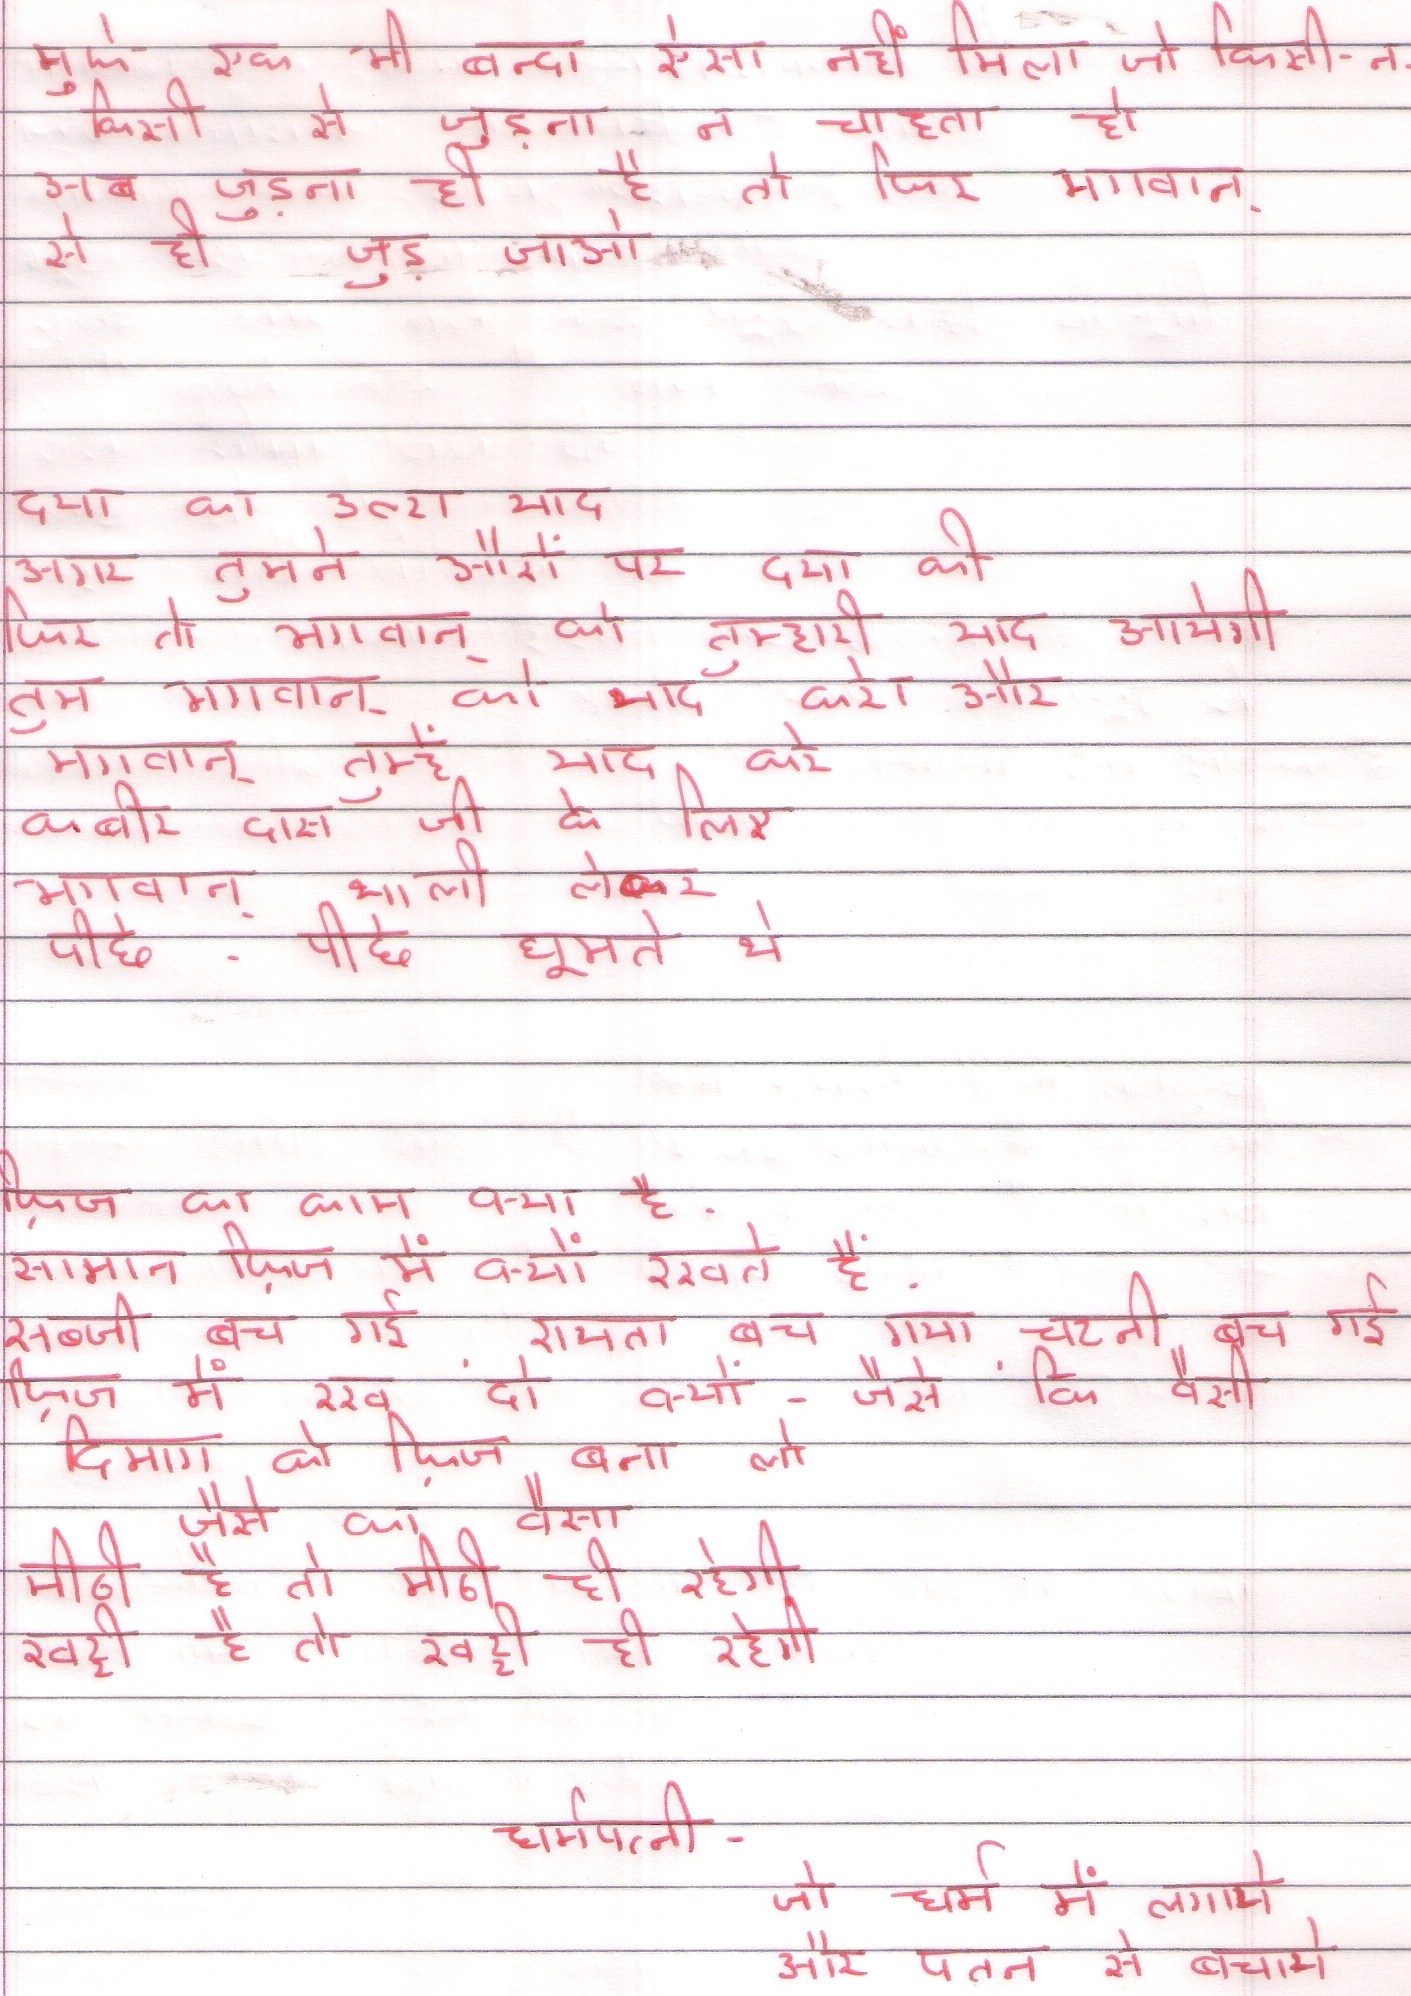 मुझे एक भी बन्दा ऐसा नहीं मिला जो किसी-न-
किसी से जुड़ना न चाहता हो
अब जुड़ना ही है तो फिर भगवान्
से ही जुड़ जाओ
दया का उल्टा याद
अगर तुमने औरों पर दया की
फिर तो भगवान् को तुम्हारी याद आयेगी
तुम भगवान् को याद करो और
भगवान् तुम्हें याद करे
कबीर दास जी के लिए
भगवान् थाली लेकर
पीछे - पीछे घूमते थे
फ़्रिज का काम क्या है .
सामान फ़्रिज में क्यों रखते हैं .
सब्जी बच गई रायता बच गया चटनी बच गई
फ़्रिज में रख दो क्यों - जैसे कि वैसी
दिमाग को फ़्रिज बना लो
जैसे का वैसा
मीठी है तो मीठी ही रहेगी
खट्टी है तो खट्टी ही रहेगी
धर्मपत्नी -
जो धर्म में लगाये
और पतन से बचाये